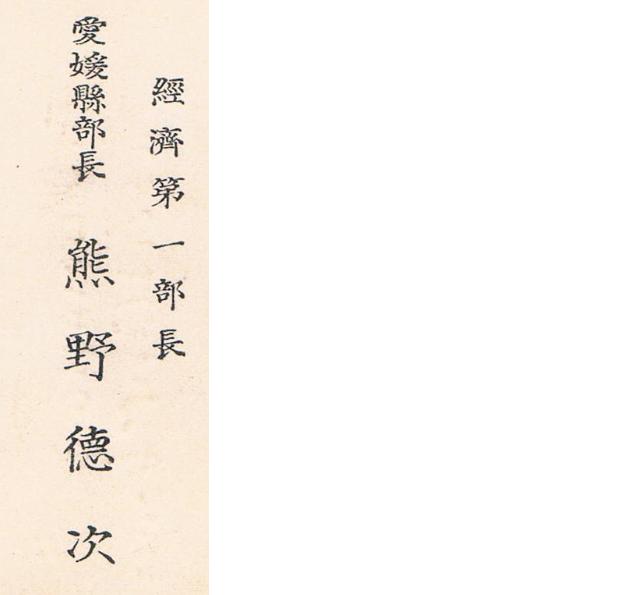 經濟第一部長
愛媛縣部長 熊野德次